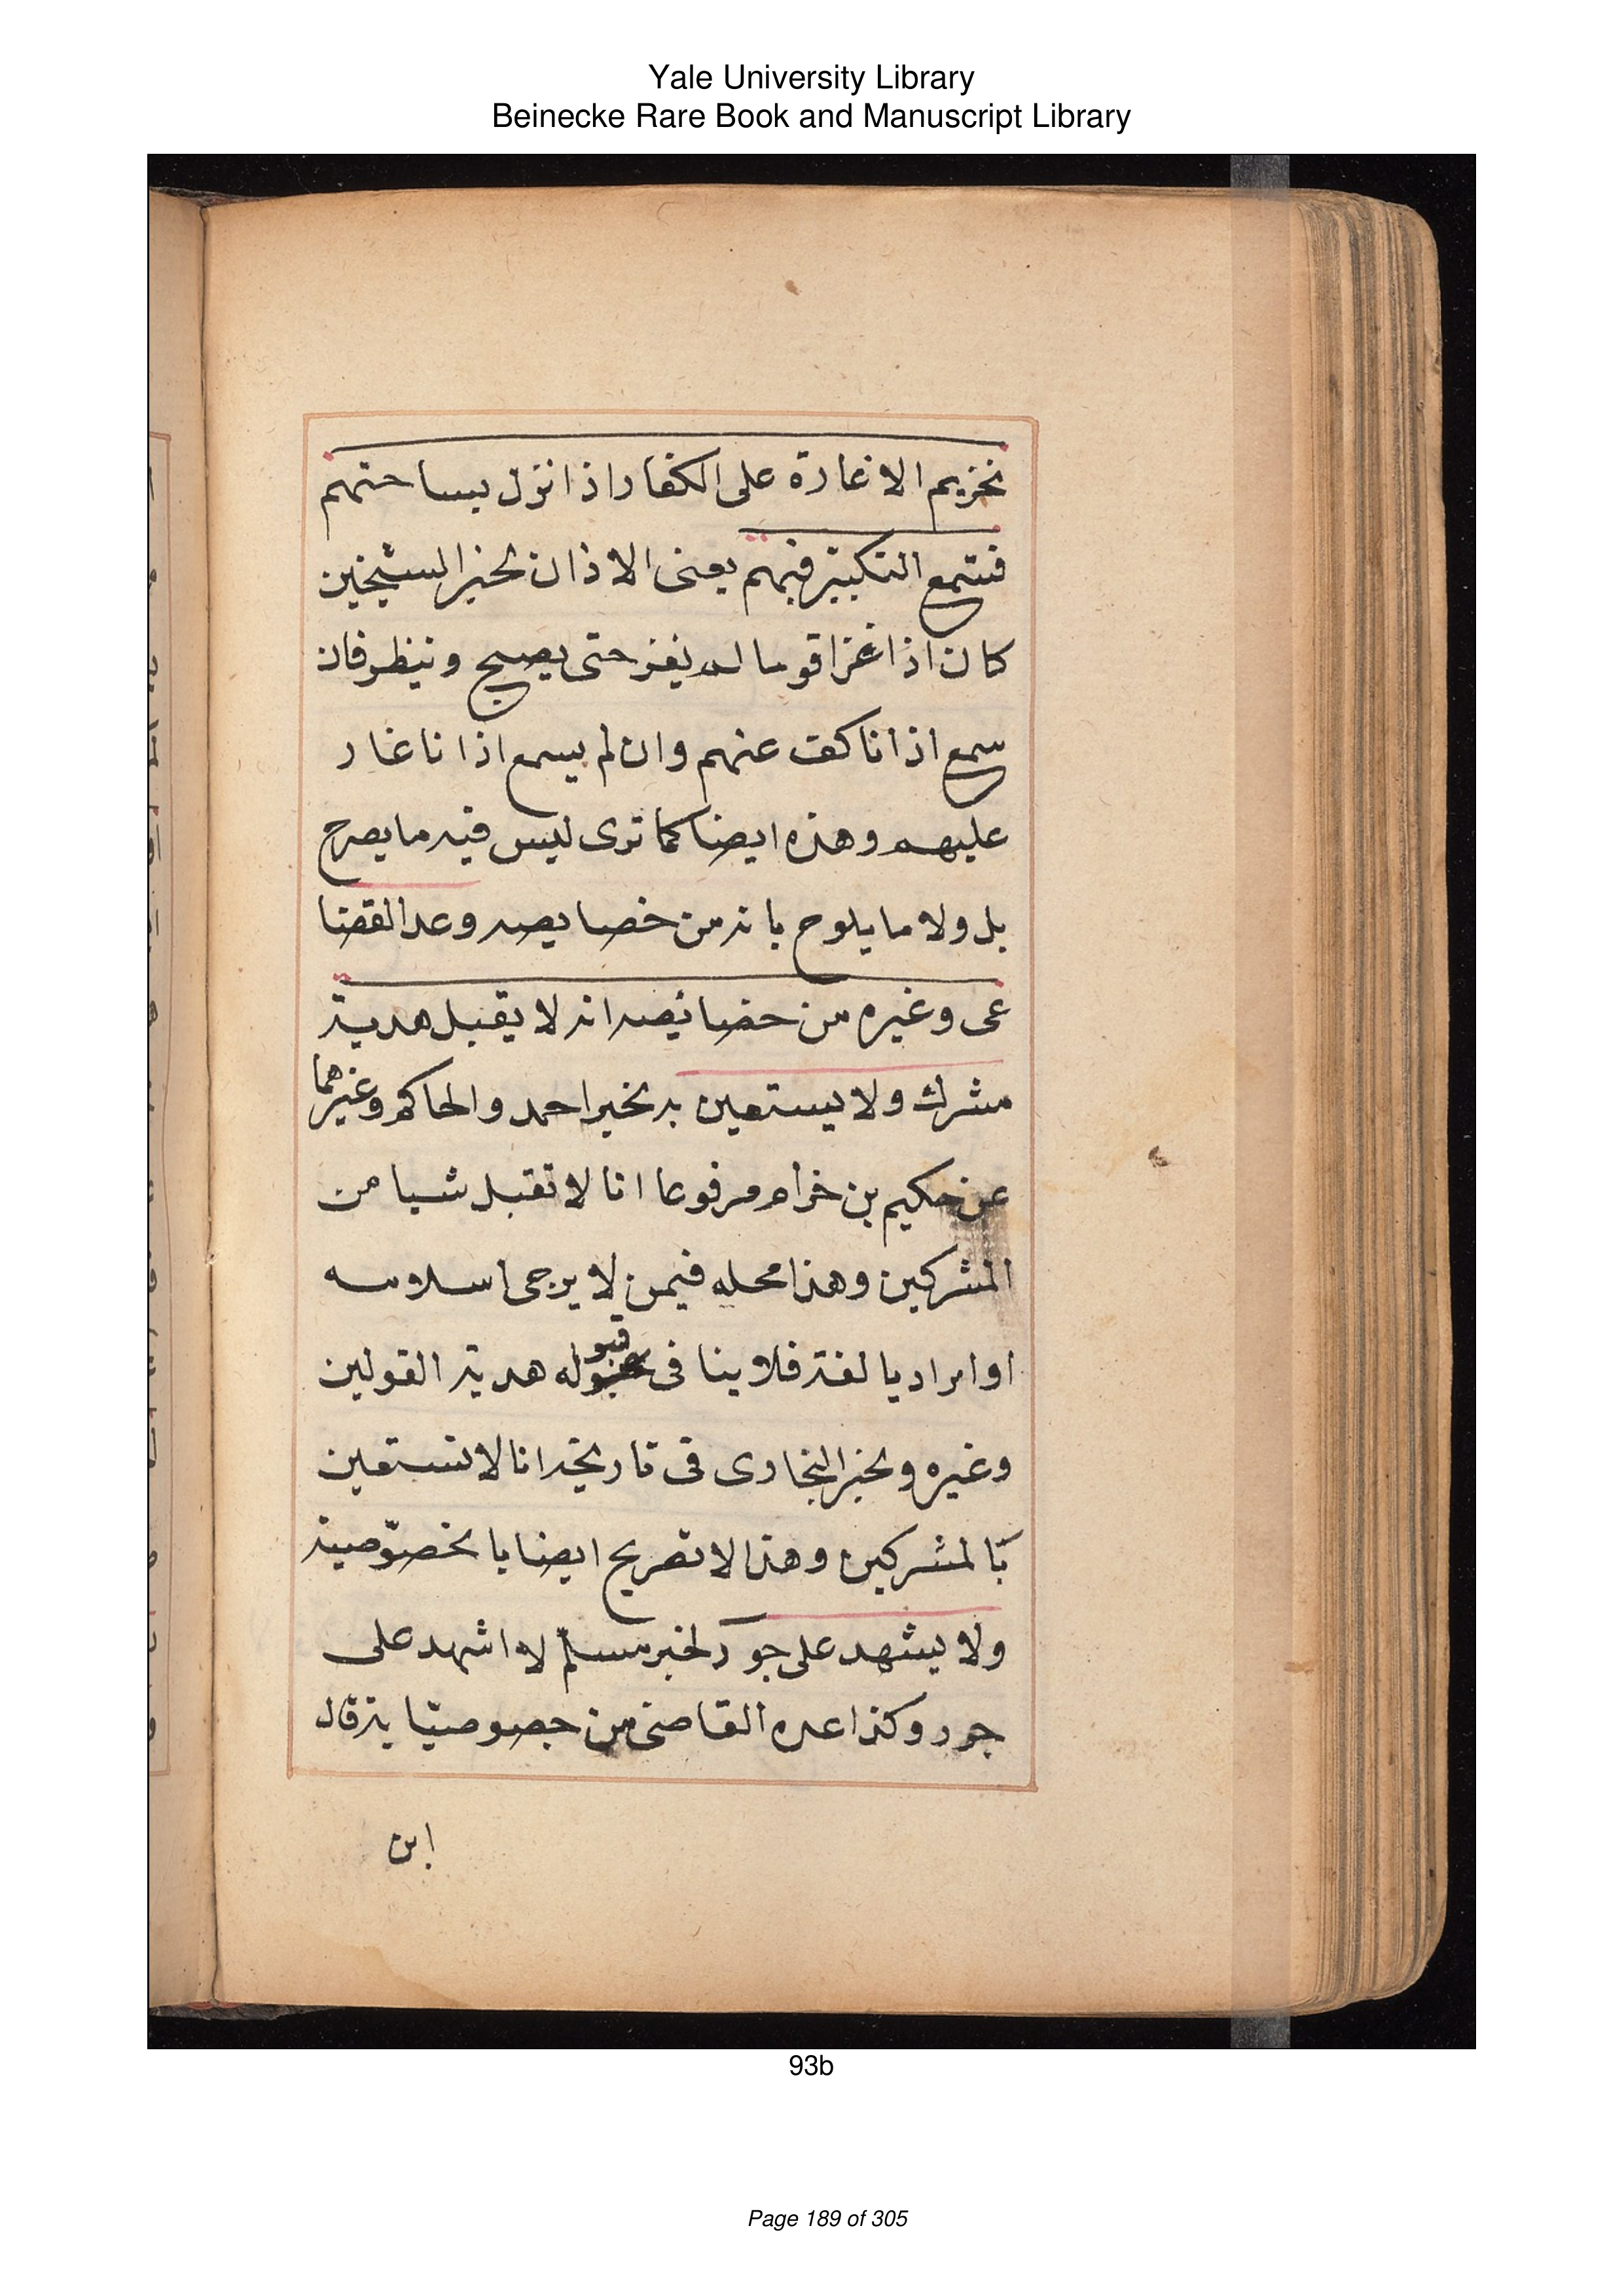 Yale University Library
Beinecke Rare Book and Manuscript Library
تحزيم الاغارة على الكفار اذا نزل بساحتهم
فنتمع التكبير فيهم يعنى الاذان لخبر الشيخين
كان اذا غزا قوما لم يغز حتى يصبح وينظر فان
سمع اذانا كف عنهم وان لم يسمع اذانا غار
عليهم وهذه ايضا كما ترى ليس فيه ما يصرح
بل ولا ما يلوح بانه من خصايصه وعد القضا
عى وغيره من خصائصه انه لا يقبل هدية
مشرك ولا يستعين به لخبر احمد والحاكم وغيرهما
عن حكيم بن حزام مرفوعا انا لا تقبل شيا من
المشركين وهذا محله فيمن لا يرجى اسلامه
او اراد يالفته فلا ينا فى قبوله هدية القولين
وغيره ولخبر البخارى فى تاريخه انا لا نستعين
بالمشركين وهذا لا تصريح ايضا با لخصوصية
ولا يشهد على جور لخبر مسلم لا اشهد على
جور وكذا عده القاضى من خصوصيا يته قال
ابن
93b
Page 189 of 305